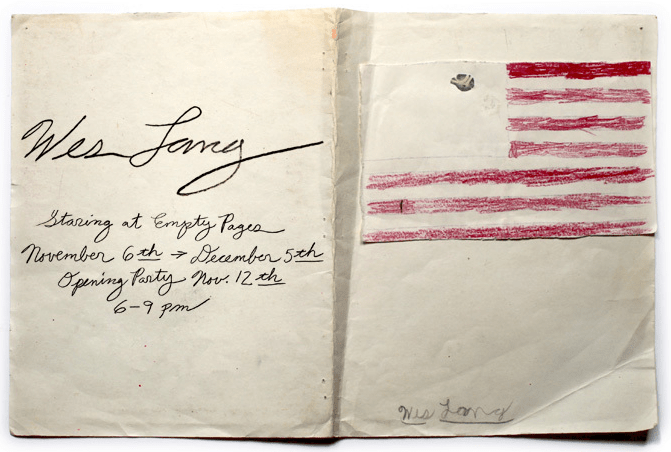 Wes Lang
Staring at Empty Pages
November 6th → December 5th
Opening Party Nov. 12th
6-9 pm
Wes Lang